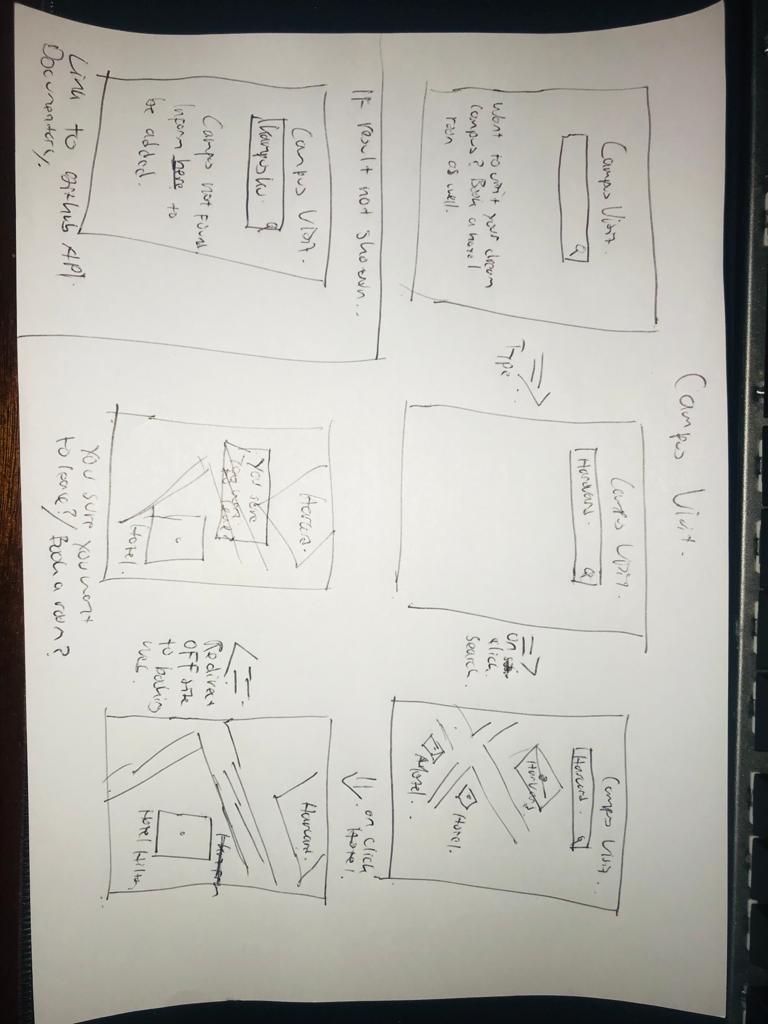 Campus Visit.
Campus Visit.
Want to visit your dream
campus? Book a hotel
room as well.
Type
Campus Visit.
Harvard.
on
click
search.
Campus Visit.
Harvard.
Harvard
Hotel.
Motel..
on click
Hotel.
Harvard.
Hotel Hilton
Redirect
OFF site
to booking
web.
Harvard.
You sure
you want
to leave?
Hotel.
You sure you want
to leave?/ Book a room?
If result not shown..
Campus Visit.
Kampusku.
Campus not found.
Inform here to
be added.
Link to github API
Documentary.